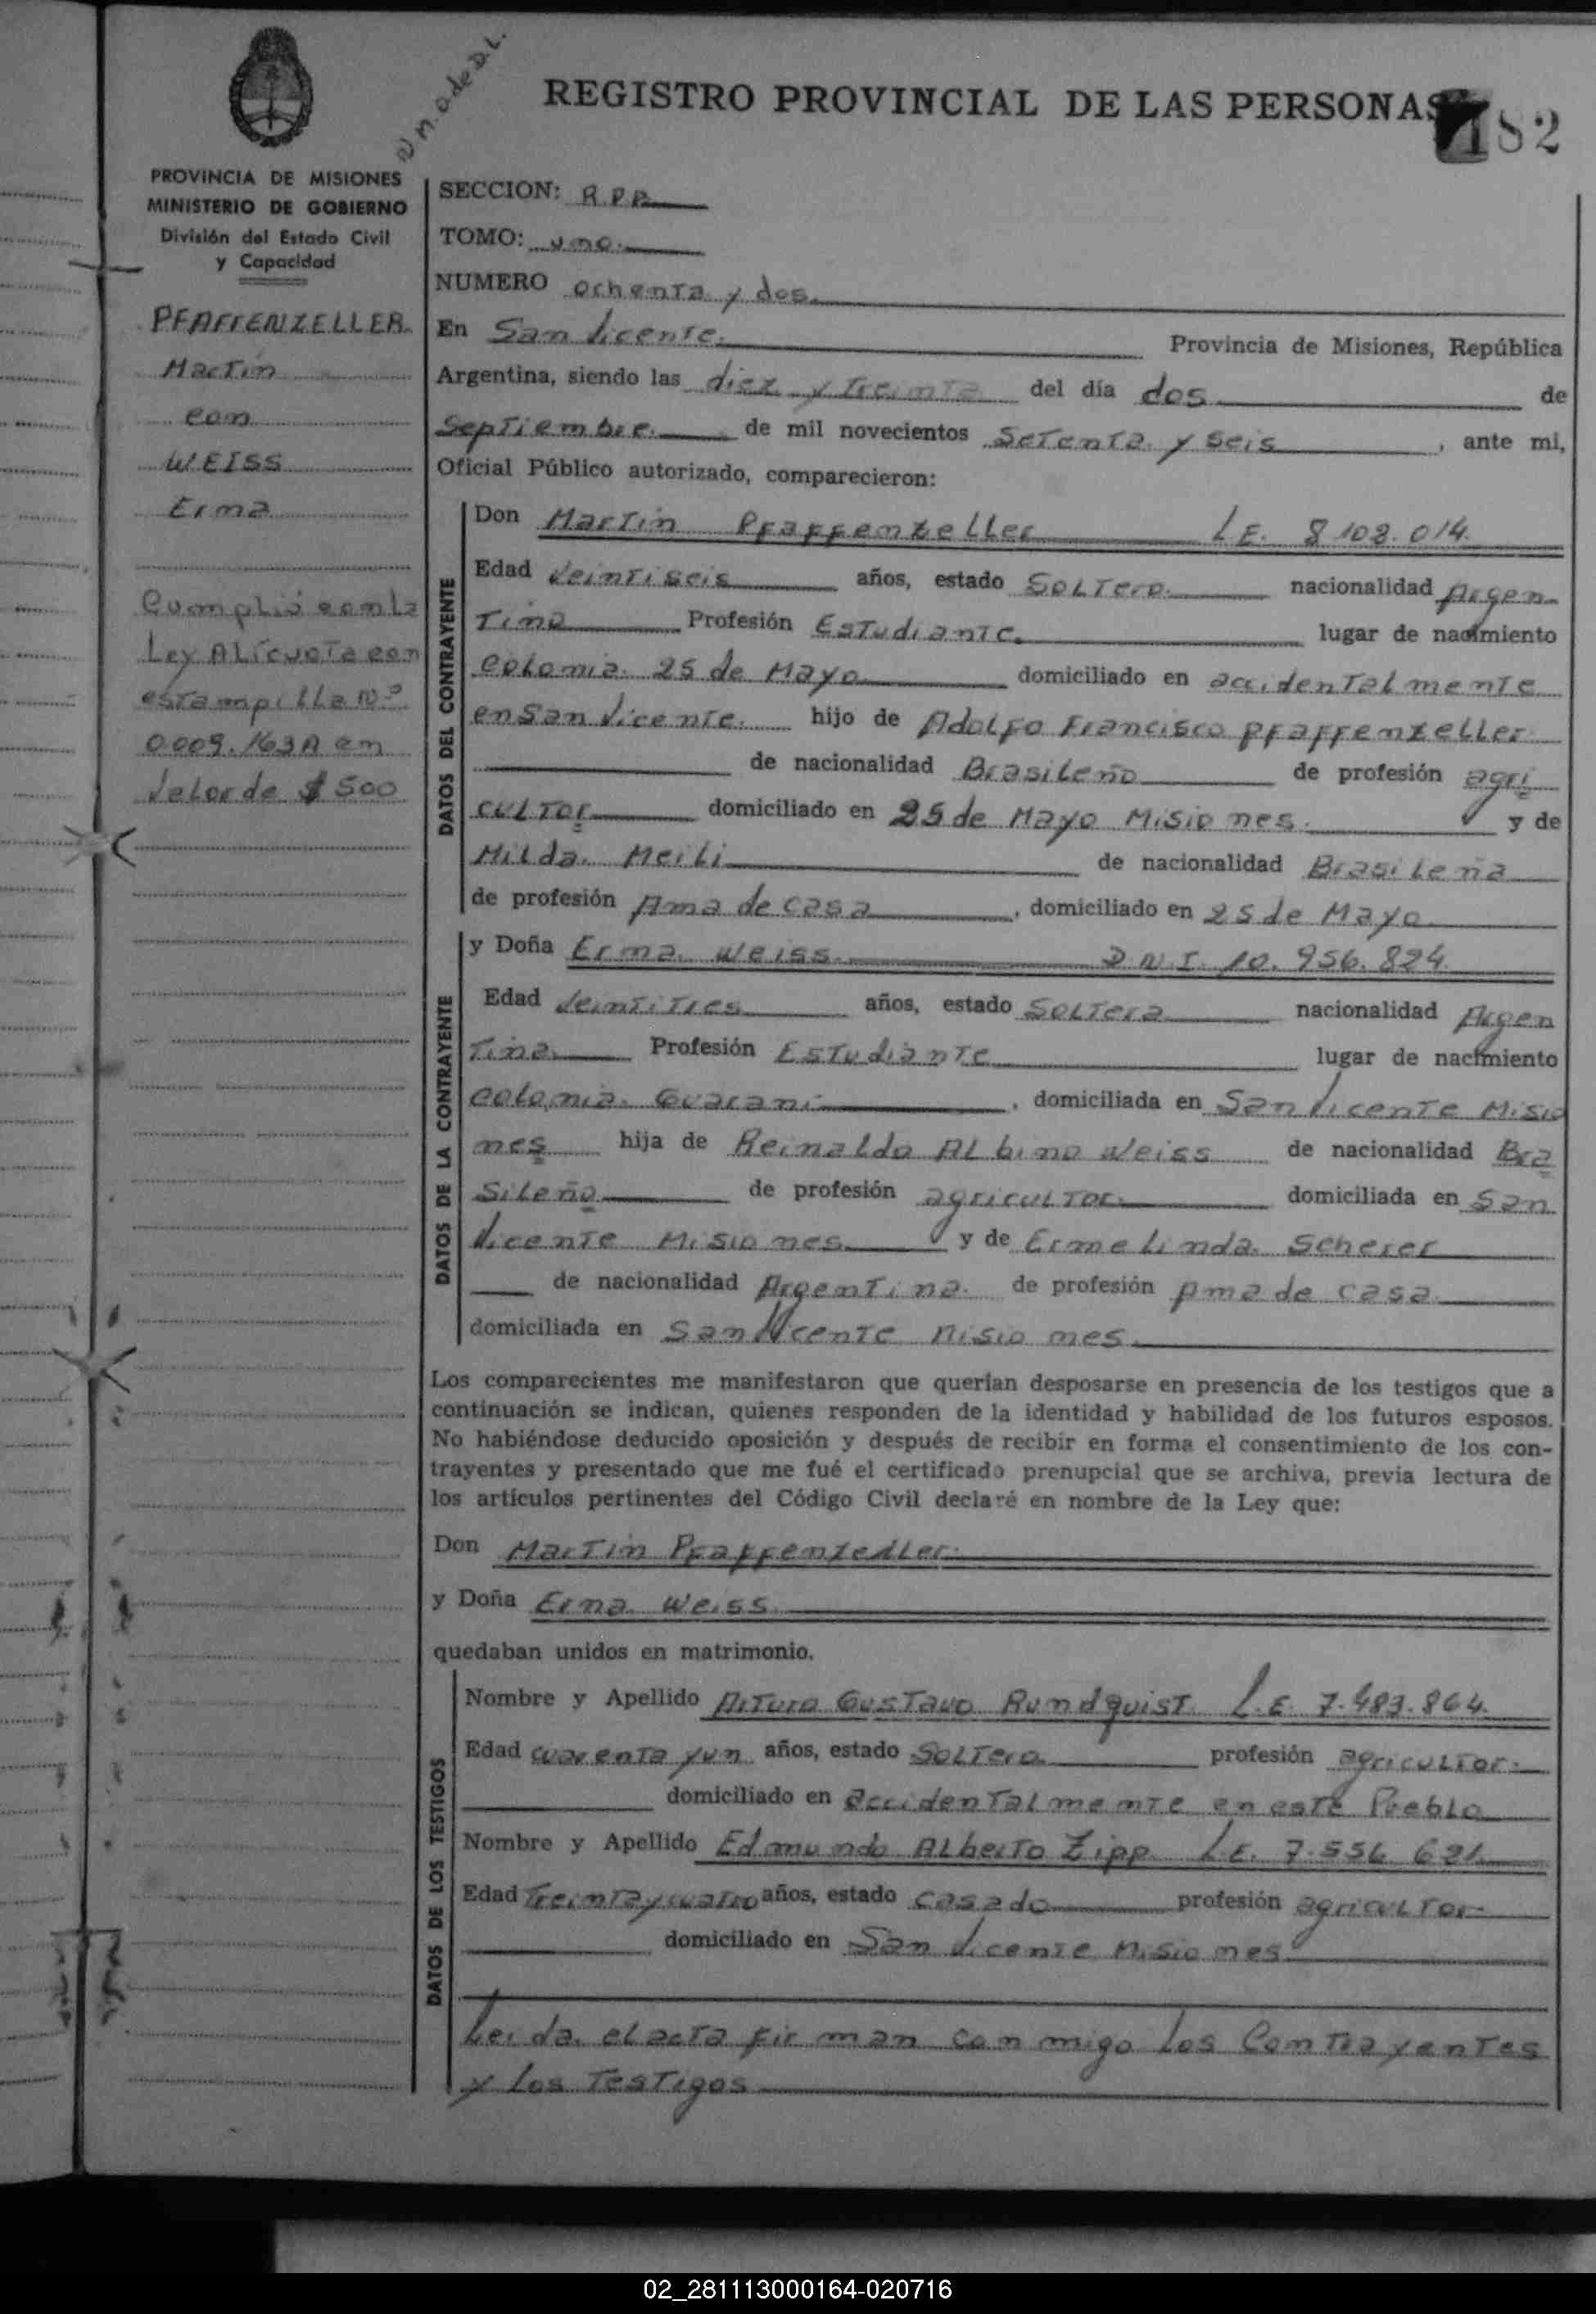 Uno de D.L.
REGISTRO PROVINCIAL DE LAS PERSONAS
182
PROVINCIA DE MISIONES
MINISTERIO DE GOBIERNO
División del Estado Civil
y Capacidad
PFAFFENZELLER
Martin
con
WEISS
Erma
Cumplió con la
Ley Alicuota con
estampilla Nº
0009.163A en
Valor de $ 500
SECCION: R.P.P.
TOMO: uno.
NUMERO ochenta y dos.
En San Vicente. Provincia de Misiones, República
Argentina, siendo las diez y treinta del día dos de
Septiembre. de mil novecientos Setenta y Seis, ante mi,
Oficial Público autorizado, comparecieron:
DATOS DEL CONTRAYENTE
Don Martin Pfaffenzeller L.E. 8.108.014.
Edad Veintiseis años, estado Soltero. nacionalidad Argen-
tina Profesión Estudiante. lugar de nacimiento
Colonia. 25 de Mayo domiciliado en accidentalmente
en San Vicente. hijo de Adolfo Francisco Pfaffenzeller
de nacionalidad Brasileño de profesión agri
cultor domiciliado en 25 de Mayo Misiones. y de
Milda. Meili de nacionalidad Brasileña
de profesión Ama de casa, domiciliado en 25 de Mayo
DATOS DE LA CONTRAYENTE
y Doña Erma. Weiss. D.N.I. 10.956.824.
Edad Veintitres años, estado Soltera nacionalidad Argen
tina. Profesión Estudiante lugar de nacimiento
Colonia. Guarani, domiciliada en San Vicente Misio
nes hija de Reinaldo Albino Weiss de nacionalidad Bra
sileña de profesión agricultor. domiciliada en San
Vicente Misiones y de Ermelinda. Scherer
de nacionalidad Argentina. de profesión Ama de casa.
domiciliada en San Vicente Misiones.
Los comparecientes me manifestaron que querían desposarse en presencia de los testigos que a
continuación se indican, quienes responden de la identidad y habilidad de los futuros esposos.
No habiéndose deducido oposición y después de recibir en forma el consentimiento de los con-
trayentes y presentado que me fué el certificado prenupcial que se archiva, previa lectura de
los artículos pertinentes del Código Civil declaré en nombre de la Ley que:
Don Martin Pfaffenzeller.
y Doña Erma. Weiss.
quedaban unidos en matrimonio.
DATOS DE LOS TESTIGOS
Nombre y Apellido Arturo Gustavo Rundquist. L.E. 7.483.864.
Edad cuarenta y un años, estado Soltero profesión agricultor.
domiciliado en accidentalmente en este Pueblo
Nombre y Apellido Edmundo Alberto Zipp. L.E. 7.556 621
Edad Treinta y cuatro años, estado casado profesión agricultor
domiciliado en San Vicente Misiones
Leida. el acta firman con migo los Contrayentes
y los Testigos
02_281113000164-020716